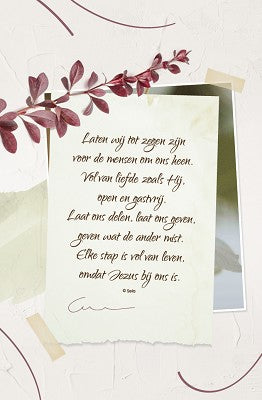 Laten wij tot zegen zijn
voor de mensen om ons heen.
Vol van liefde zoals Hij,
open en gastvrij.
Laat ons delen, laat ons geven,
geven wat de ander mist.
Elke stap is vol van leven,
omdat Jezus bij ons is.
© Sela